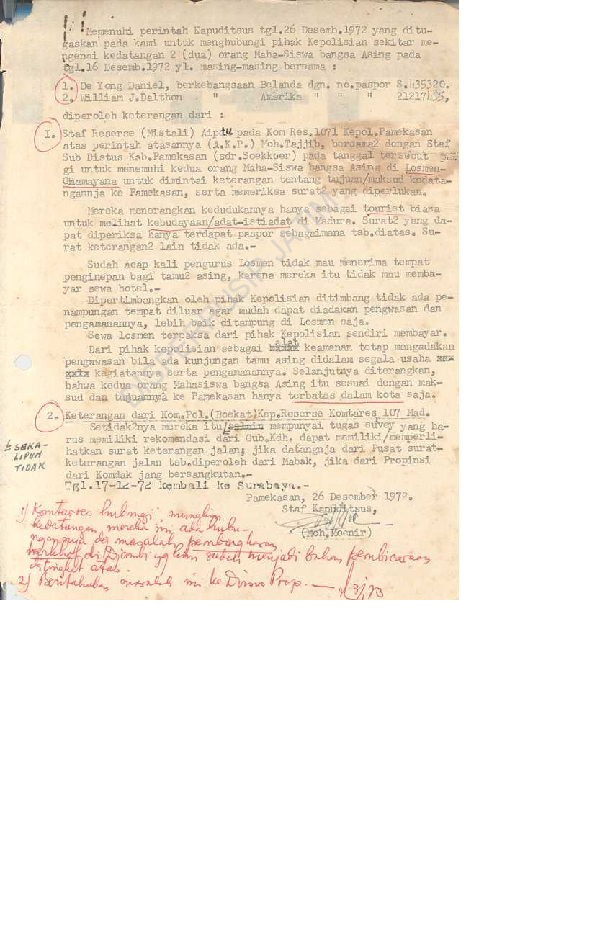 Memenuhi perintah Kapuditsus tgl.26 Desemb.1972 yang ditu-
gaskan pada kami untuk menghubungi pihak Kepolisian sekitar me-
ngenai kedatangan 2 (dua) orang Maha-Siswa bangsa Asing pada
tgl.16 Desemb.1972 yl. masing-masing bernama :
1. De Yong Daniel, berkebangsaan Belanda dgn. no.paspor S.435320.
2. William J.Dalthon " Amerika " " "
diperoleh keterangan dari :
I. Staf Reserse (Mistali) Aiptu pada Kom Res.1071 Kepol.Pamekasan
atas perintah atasannya (A.K.P.) Moh.Tajjib, bersama2 dengan Staf
Sub Distus Kab.Pamekasan (sdr.Soekkoer) pada tanggal tersebut
gi untuk menemuhi kedua orang Maha-Siswa bangsa Asing di Losmen
untuk dimintai keterangan tentang tujuan/maksud kedata-
ngannja ke Pamekasan, serta memeriksa surat2 yang diperlukan.
Mereka menerangkan kedudukannya hanya sebagai tourist biasa
untuk melihat kebudayaan/adat-istiadat di Madura. Surat2 yang da-
pat diperiksa hanya terdapat paspor sebagaimana tsb.diatas. Su-
rat keterangan2 lain tidak ada.-
Sudah acap kali pengurus Losmen tidak mau menerima tempat
penginepan bagi tamu2 asing, karena mereka itu tidak mau memba-
yar sewa hotel.-
Dipertimbangkan oleh pihak Kepolisian ditimbang tidak ada pe-
nampungan tempat diluar agar mudah dapat diadakan pengwasan dan
pengamanannya, lebih baik ditampung di Losmen saja.
Sewa losmen terpaksa dari pihak Kepolisian sendiri membayar.
Dari pihak kepolisian sebagai alat keamanan tetap mengadakan
pengawasan bila ada kunjungan tamu Asing didalam segala usaha
kegiatannya serta pengamanannya. Selanjutnya diterangkan,
bahwa kedua orang Mahasiswa bangsa Asing itu sesuai dengan mak-
sud dan tujuannya ke Pamekasan hanya terbatas dalam kota saja.
2. Keterangan dari Kom.Pol.(Boekat)Ksp.Reserse Komtares 107 Mad.
Setidak2nya mereka itu mempunyai tugas suvey yang ha-
rus memiliki rekomendasi dari Gub.Kdh, dapat memiliki/memperli-
hatkan surat keterangan jalan; jika datangnja dari Pusat surat-
keterangan jalan tsb.diperoleh dari Mabak, jika dari Propinsi
dari Komdak jang bersangkutan.-
SEKA-
LIPUN
TIDAK
Tgl.17-12-72 kembali ke Surabaya.-
Pamekasan, 26 Desember 1972.
Staf Kapuditsus,
(Moh.Moenir)
1)
kedatangan mereka ini ada hubu-
ngannya dg masalah
di sudah menjadi bahan pembicaraan
ditingkat atas.
2) Beritahukan masalah ini ke Prop. —